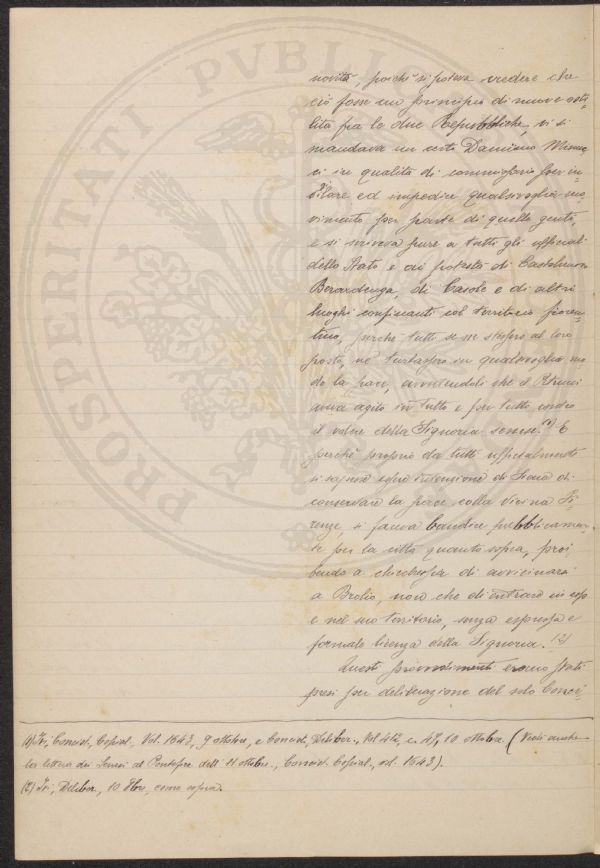 PROSPERITATI PVBLICAE
novità, poichè si poteva credere che
ciò fosse un principio di nuove osti-
lità fra le due Repubbliche, vi si
mandava un certo Damiano
in qualità di commissario per in-
vigilare ed impedire qualsivoglia mo-
vimento per parte di quelle genti,
e si scriveva pure a tutti gli ufficiali
dello Stato e ai potestà di Castelnuovo
Berardenga, di Casole e di altri
luoghi confinanti col territorio fioren-
tino, perchè tutti se ne stessero al loro
posto, nè turbassero in qualsivoglia mo-
do la pace, avvertendoli che il Petrucci
aveva agito in tutto e per tutto contro
il volere della Signoria senese. (1) E
perchè proprio da tutti ufficialmente
si sapesse essere intenzione di Siena di
conservare la pace colla vicina Fi-
renze, si faceva bandire pubblicamen-
te per la città quanto sopra, proi-
bendo a chicchessia di avvicinarsi
a Brolio, non che di entrare in esso
e nel suo territorio, senza espressa e
formale licenza della Signoria. (2)
Questi provvedimenti erano stati
presi per deliberazione del solo Conci-
(1) Ivi, Concist., Copial., Vol. 1643, 9 ottobre, e Concist., Deliber., Vol. 412, c. 47, 10 ottobre. (Vedi anche
la lettera dei Senesi al Pontefice dell' 11 ottobre, Concist. Copial., vol. 1643).
(2) Ivi, Deliber., 10 8bre, come sopra.